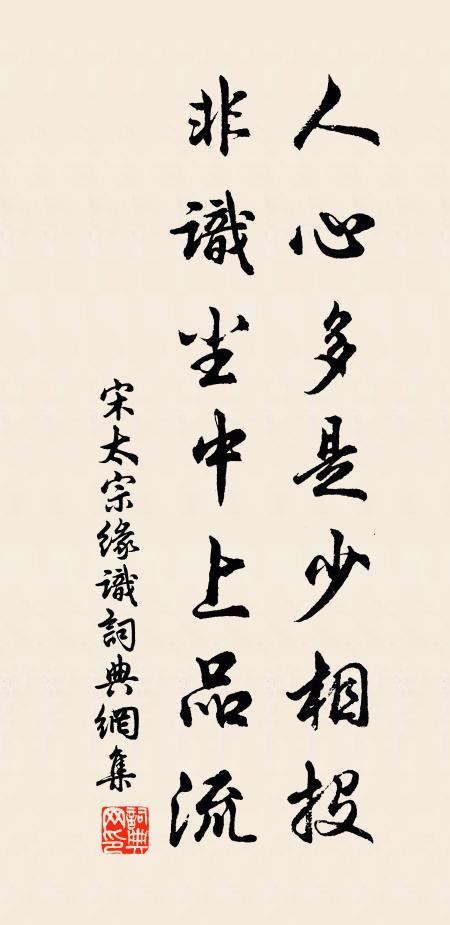 人心多是少相投
非識尘中上品流
宋太宗緣識詞典網集
詞典網印